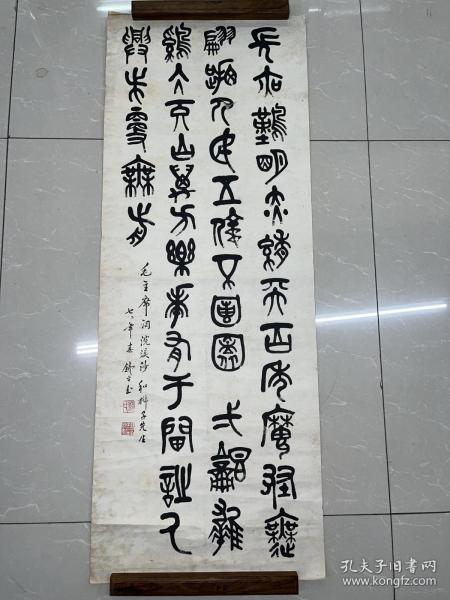 長夜難明赤縣天百年魔怪舞
翩躚人民五億不團圓 弌唱雄
鷄天下白萬方樂奏有于闐詩人
興會更無前
毛主席词浣溪沙 和柳子先生
年春
孔夫子旧书网
www.kongfz.com